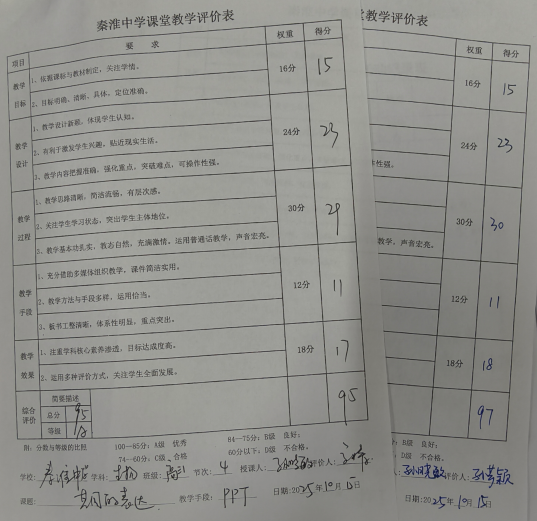 秦淮中学课堂教学评价表
项目 要 求 权重 得分
教学目标 1、依据课标与教材制定,关注学情。 16分 15
2、目标明确、清晰、具体,定位准确。
教学设计 1、教学设计新颖,体现学生认知。 24分 23
2、有利于激发学生兴趣,贴近现实生活。
3、教学内容把握准确,强化重点,突破难点,可操作性强。
教学过程 1、教学思路清晰,简洁流畅,有层次感。 30分 29
2、关注学生学习状态,突出学生主体地位。
3、教学基本功扎实,教态自然,充满激情,运用普通话教学,声音宏亮。
教学手段 1、充分借助多媒体组织教学,课件简洁实用。 12分 11
2、教学方法与手段多样,运用恰当。
3、板书工整清晰,体系性明显,重点突出。
教学效果 1、注重学科核心素养渗透,目标达成度高。 18分 17
2、运用多种评价方式,关注学生全面发展。
综合评价 简要描述 95
总分 95
等级
附:分数与等级的比照 100—85分:A级 优秀 84—75分:B级 良好;
74—60分:C级、合格 60分以下:D级 不合格。
学校: 秦淮中学 学科: 生物 班级: 节次: 4 授课人: 评价人:
课题: 基因的表达 教学手段: PPT 日期:2025年10月15日
教学评价表
权重 得分
16分 15
24分 23
性强。
30分 30
教学,声音宏亮。
12分 11
18分 18
97
B级 良好;
D级 不合格。
评价人:
日期:2025年10月15日